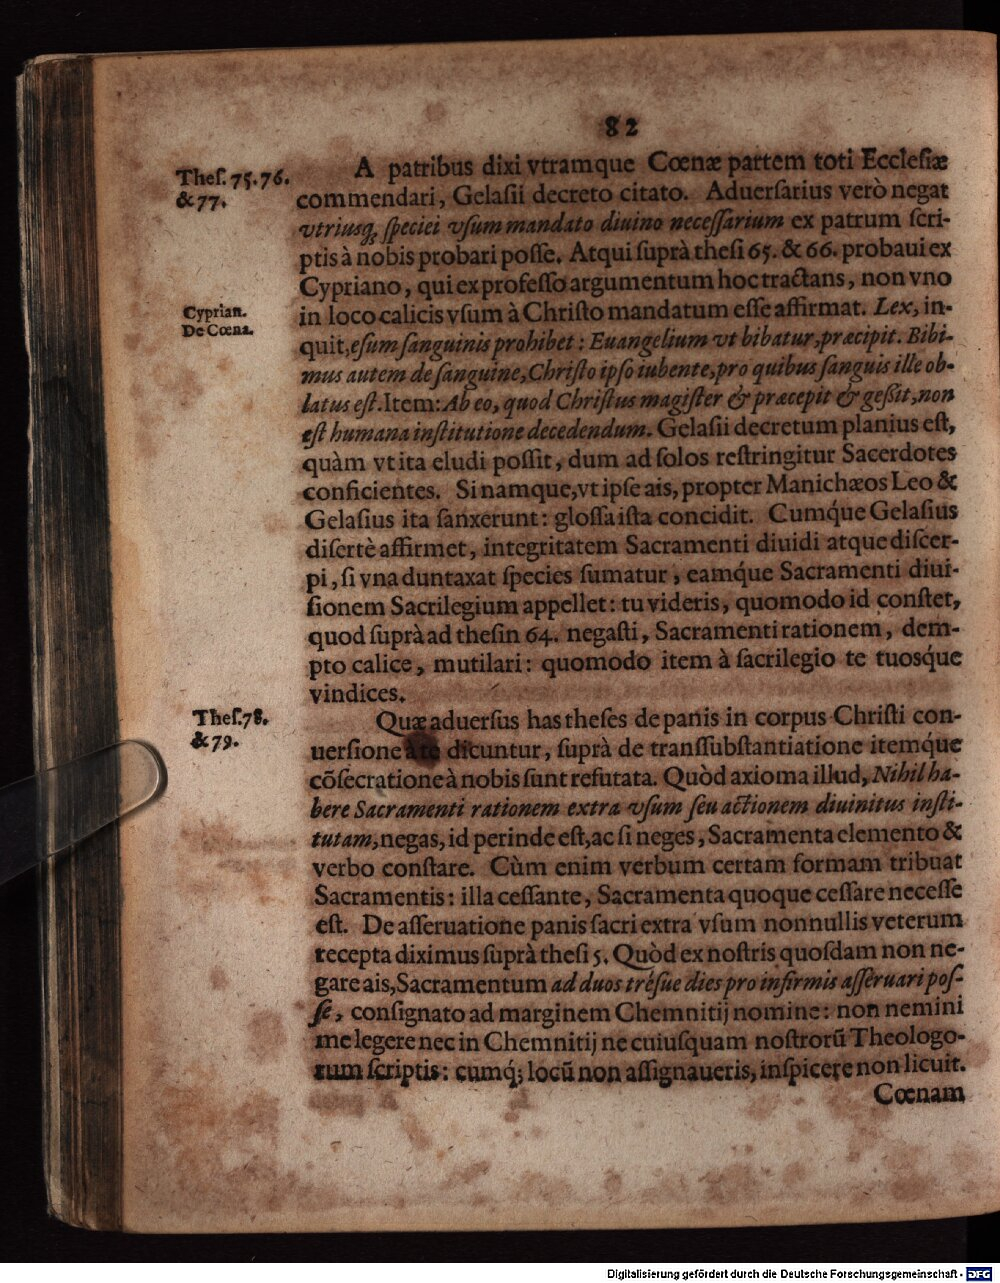 82
Theſ. 75. 76.
& 77.
A patribus dixi vtramque Cœnæ partem toti Eccleſiæ
commendari, Gelaſii decreto citato. Aduerſarius verò negat
vtriusq́; ſpeciei vſum mandato diuino neceſſarium ex patrum ſcri-
ptis à nobis probari poſſe. Atqui ſuprà theſi 65. & 66. probaui ex
Cypriano, qui ex profeſſo argumentum hoc tractans, non vno
Cyprian.
De Cœna.
in loco calicis vſum à Chriſto mandatum eſſe affirmat. Lex, in-
quit, eſum ſanguinis prohibet: Euangelium vt bibatur, præcipit. Bibi-
mus autem de ſanguine, Chriſto ipſo iubente, pro quibus ſanguis ille ob-
latus eſt. Item: Ab eo, quod Chriſtus magiſter & præcepit & geßit, non
eſt humana inſtitutione decedendum. Gelaſii decretum planius eſt,
quàm vt ita eludi poſſit, dum ad ſolos reſtringitur Sacerdotes
conficientes. Si namque, vt ipſe ais, propter Manichæos Leo &
Gelaſius ita ſanxerunt: gloſſa iſta concidit. Cumq́ue Gelaſius
diſertè affirmet, integritatem Sacramenti diuidi atque diſcer-
pi, ſi vna duntaxat ſpecies ſumatur, eamq́ue Sacramenti diui-
ſionem Sacrilegium appellet: tu videris, quomodo id conſtet,
quod ſuprà ad theſin 64. negaſti, Sacramenti rationem, dem-
pto calice, mutilari: quomodo item à ſacrilegio te tuosq́ue
vindices.
Theſ. 78.
& 79.
Quæ aduerſus has theſes de panis in corpus Chriſti con-
uerſione à te dicuntur, ſuprà de transſubſtantiatione itemq́ue
cõſecratione à nobis ſunt refutata. Quòd axioma illud, Nihil ha-
bere Sacramenti rationem extra vſum ſeu actionem diuinitus inſti-
tutam, negas, id perinde eſt, ac ſi neges, Sacramenta elemento &
verbo conſtare. Cùm enim verbum certam formam tribuat
Sacramentis: illa ceſſante, Sacramenta quoque ceſſare neceſſe
eſt. De aſſeruatione panis ſacri extra vſum nonnullis veterum
recepta diximus ſuprà theſi 5. Quòd ex noſtris quoſdam non ne-
gare ais, Sacramentum ad duos tréſue dies pro infirmis aſſeruari poſ-
ſe, conſignato ad marginem Chemnitij nomine: non nemini
me legere nec in Chemnitij ne cuiusquam noſtrorũ Theologo-
rum ſcriptis: cumq́; locũ non aſſignaueris, inſpicere non licuit.
Cœnam
Digitalisierung gefördert durch die Deutsche Forschungsgemeinschaft - DFG